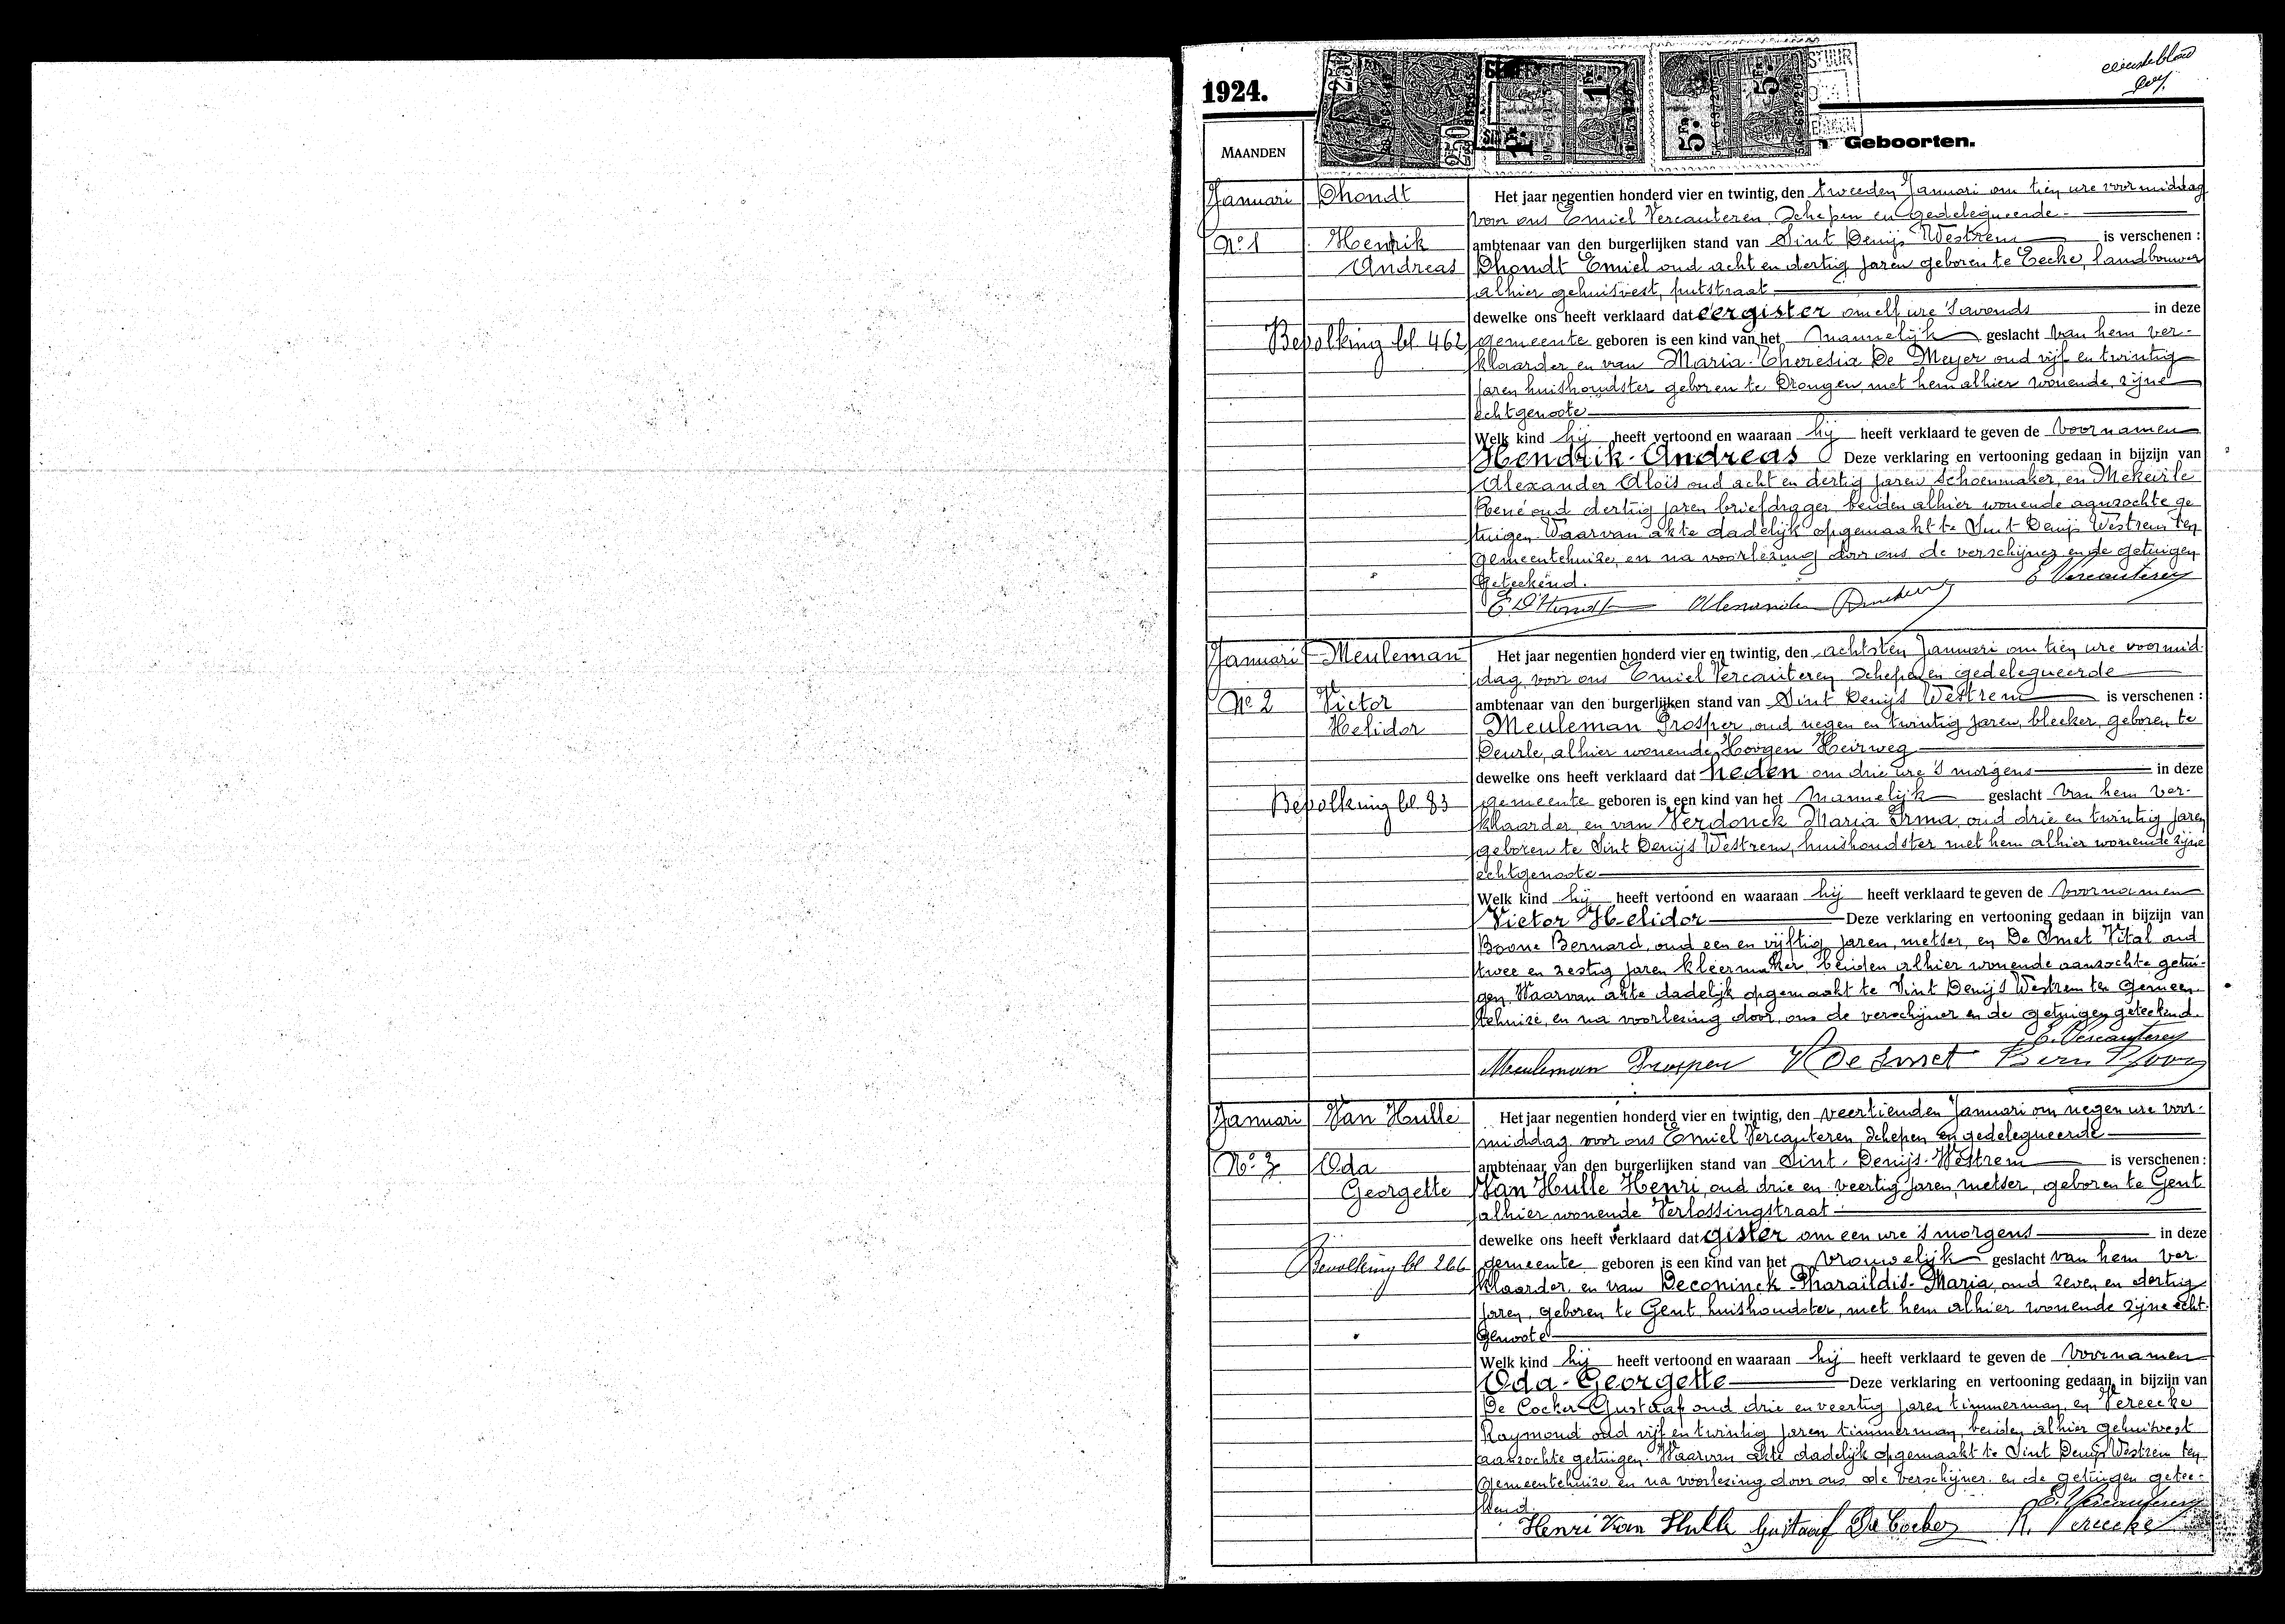 1924.
eerste blad
MAANDEN
Geboorten.
Januari
Dhondt
Het jaar negentien honderd vier en twintig, den tweeden Januari om tien ure voormiddag
voor ons Emiel Vercauteren, Schepen en gedelegueerde
No 1
Hendrik
ambtenaar van den burgerlijken stand van Sint Denijs Westrem is verschenen :
Andreas
Dhondt Emiel oud acht en dertig jaren geboren te Eecke, landbouwer
alhier gehuisvest, putstraat
dewelke ons heeft verklaard dat eergister om elf ure 's avonds in deze
Bevolking bl 462
gemeente geboren is een kind van het mannelijk geslacht van hem ver-
klaarder en van Maria-Theresia De Meyer oud vijf en twintig
jaren huishoudster geboren te Drongen, met hem alhier wonende, zijne
echtgenoote
Welk kind hij heeft vertoond en waaraan hij heeft verklaard te geven de voornamen
Hendrik-Andreas Deze verklaring en vertooning gedaan in bijzijn van
Alexander Aloïs oud acht en dertig jaren schoenmaker, en Mekeirle
René oud dertig jaren briefdrager, beiden alhier wonende aanzochte ge
tuigen. Waarvan akte dadelijk opgemaakt te Sint Denijs Westrem ten
gemeentehuize, en na voorlezing door ons de verschijner en de getuigen
geteekend.
E Vercauteren
E D'Hondt Alexander
Januari
Meuleman
Het jaar negentien honderd vier en twintig, den achtsten Januari om tien ure voormid-
dag, voor ons Emiel Vercauteren Schepen gedelegueerde
No 2
Victor
ambtenaar van den burgerlijken stand van Sint Denijs Westrem is verschenen :
Helidor
Meuleman Prosper, oud negen en twintig jaren, bleeker, geboren te
Deurle, alhier wonende, Hoogen Heirweg
dewelke ons heeft verklaard dat heden om drie ure 's morgens in deze
Bevolking bl 83
gemeente geboren is een kind van het mannelijk geslacht van hem ver-
klaarder, en van Verdonck Maria Irma, oud drie en twintig jaren
geboren te Sint Denijs Westrem, huishoudster met hem alhier wonende zijne
echtgenoote
Welk kind hij heeft vertoond en waaraan hij heeft verklaard te geven de voornamen
Victor Helidor Deze verklaring en vertooning gedaan in bijzijn van
Boone Bernard, oud een en vijftig jaren, metser, en De Smet Vital oud
twee en zestig jaren kleermaker, beiden alhier wonende aanzochte getui-
gen. Waarvan akte dadelijk opgemaakt te Sint Denijs Westrem ten Gemeen-
tehuize, en na voorlezing door ons de verschijner en de getuigen geteekend.
E. Vercauteren
Meuleman Prosper V De Smet Bern Boone
Januari
Van Hulle
Het jaar negentien honderd vier en twintig, den veertienden Januari om negen ure voor-
middag voor ons Emiel Vercauteren, Schepen en gedelegueerde
No. 3
Oda
ambtenaar van den burgerlijken stand van Sint-Denijs-Westrem is verschenen :
Georgette
Van Hulle Henri, oud drie en veertig jaren, metser, geboren te Gent
alhier wonende Verlossingstraat
dewelke ons heeft verklaard dat gister om een ure 's morgens in deze
Bevolking bl 266
gemeente geboren is een kind van het vrouwelijk geslacht van hem ver-
klaarder, en van Deconinck-Pharaïldis-Maria, oud zeven en dertig
jaren, geboren te Gent, huishoudster, met hem alhier wonende zijne echt-
genoote
Welk kind hij heeft vertoond en waaraan hij heeft verklaard te geven de voornamen
Oda-Georgette Deze verklaring en vertooning gedaan in bijzijn van
De Cocker Gustaaf oud drie en veertig jaren timmerman, en Vereecke
Raymond oud vijf en twintig jaren timmerman, beiden alhier gehuisvest
aanzochte getuigen. Waarvan akte dadelijk opgemaakt te Sint Denijs Westrem ten
gemeentehuize en na voorlezing door ons de verschijner en de getuigen getee-
kend.
E. Vercauteren
Henri Van Hulle Gustaaf De Cocker R. Vereecke